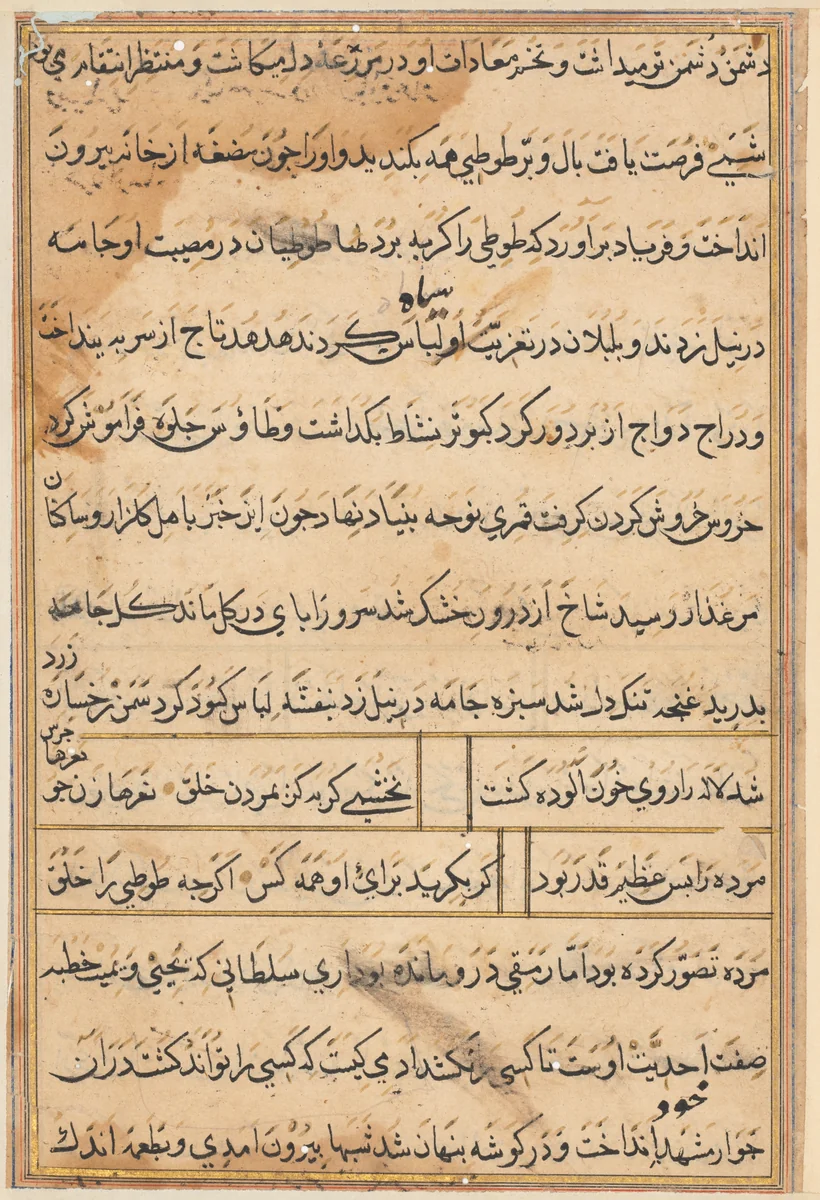 دشمن دشمن ترمیداشت و تخم معادات او در مزرعهٔ دل میکاشت و منتظر انتقام ري بود
شبي فرصت یافت بال و پر طوطي همه بکندید و اورا جون مضغه از خانه بیرون
انداخت و فریاد براورد که طوطي را کربه برد طوطیان در مصیبت او جامه
در نیل زدند و بلبلان در تعزیت او لباس سیاه کردند هدهد تاج از سر به ینداخت
و دراج دواج از بر دور کرد کبوتر نشاط بکذاشت و طاؤس جلوه فراموش کرد
خروس خروش کردن کرفت قمري نوحه بنیاد نهاد جون این خبر باهل کلزار و ساکنان
مرغذار رسید شاخ از درون خشک شد سرو را باي در کل ماند کل جامه
بدرید غنجه تنک دل شد سبزه جامه در نیل زد بنفشه لباس کبود کرد سمن رخساره زرد
شد لاله را روي خون آلوده کشت نخشبي کریه کن بمردن خلق نعرها زن جو جرس نعرها
مرده را بس عظیم قدر بود کر بکریید براي او همه کس اکرجه طوطي را خلق
مرده تصور کرده بود اما رمقي درو مانده بود اري سلطاني که یحیي و یمیت خطبه
صفت احدیت اوست تا کسي را نکشد ادمي کیست که کسي را تواند کشت در ان
جوار مشهد خود انداخت و در کوشه بنهان شد شبها بیرون امدي و بطعمهٔ اندک